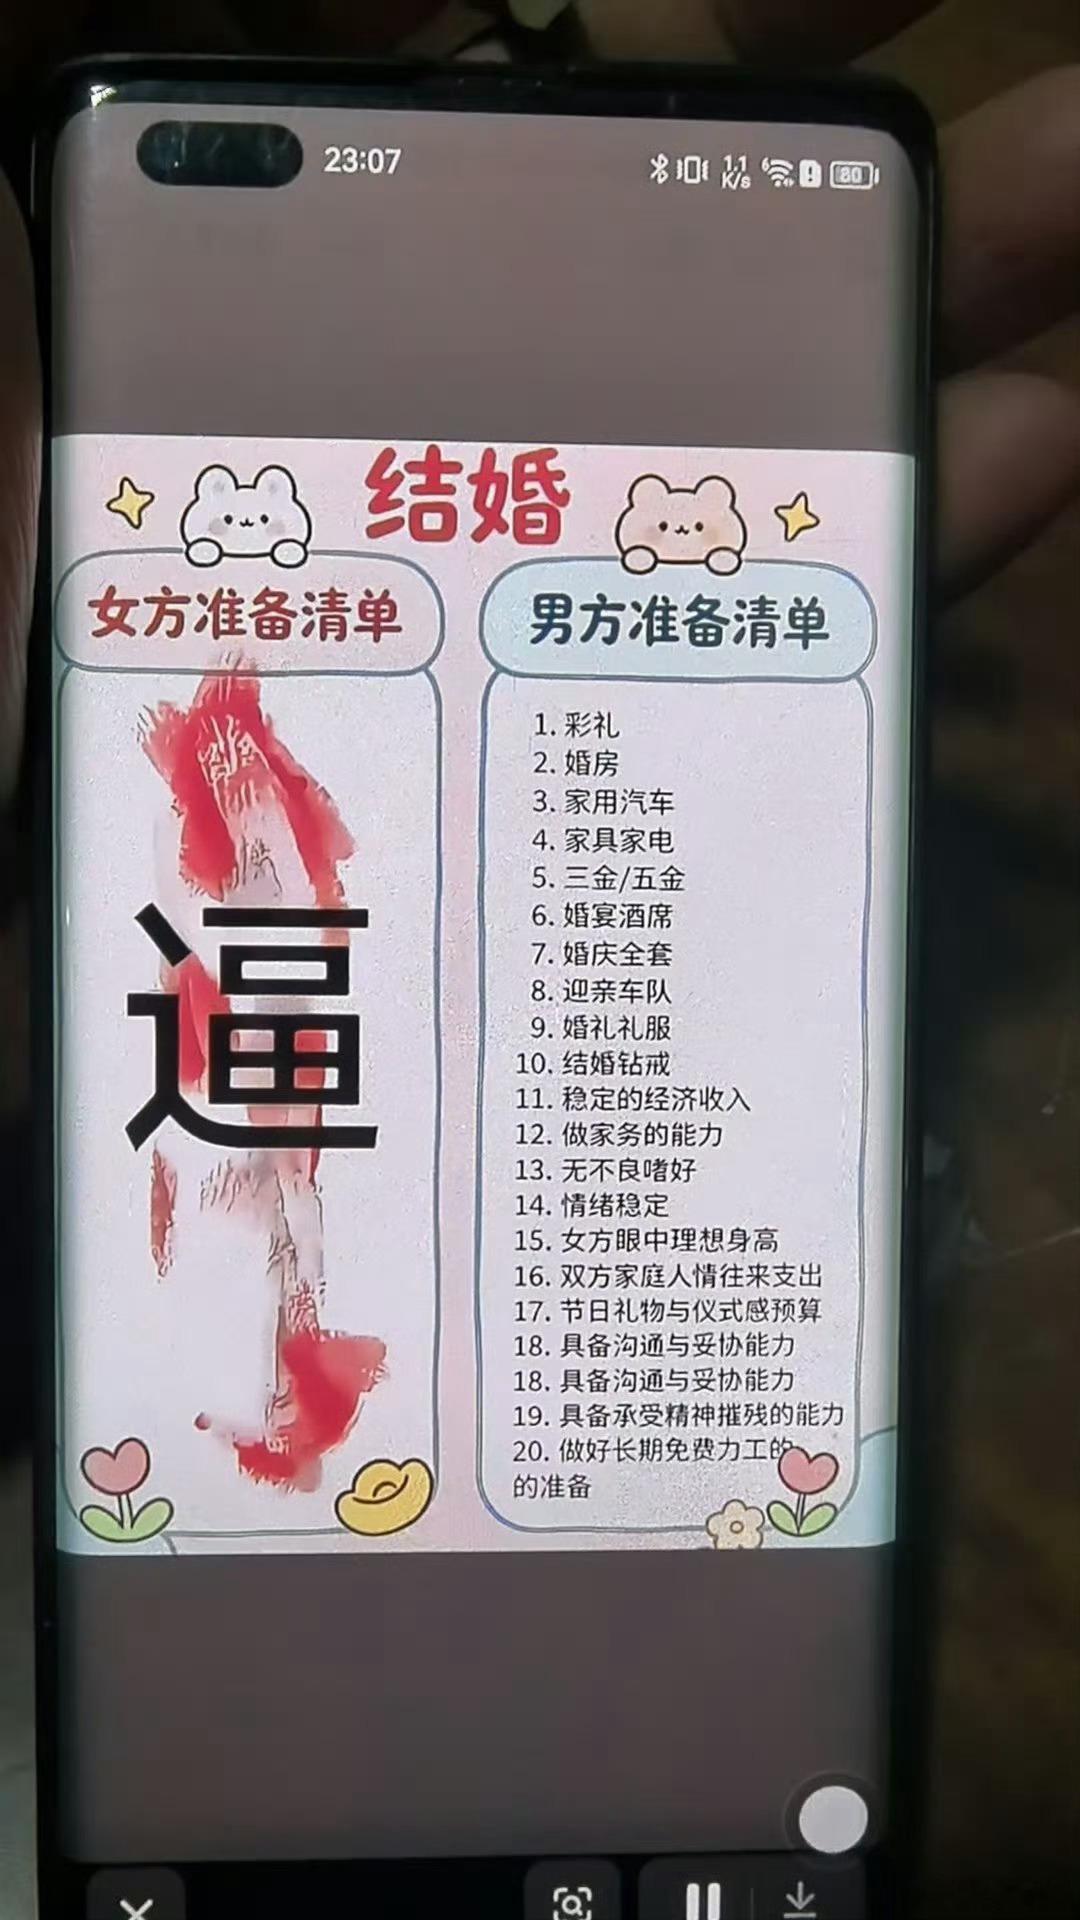 23:07
1.1
K/s
6
80
结婚
女方准备清单
逼
男方准备清单
1. 彩礼
2. 婚房
3. 家用汽车
4. 家具家电
5. 三金/五金
6. 婚宴酒席
7. 婚庆全套
8. 迎亲车队
9. 婚礼礼服
10. 结婚钻戒
11. 稳定的经济收入
12. 做家务的能力
13. 无不良嗜好
14. 情绪稳定
15. 女方眼中理想身高
16. 双方家庭人情往来支出
17. 节日礼物与仪式感预算
18. 具备沟通与妥协能力
18. 具备沟通与妥协能力
19. 具备承受精神摧残的能力
20. 做好长期免费力工的
的准备